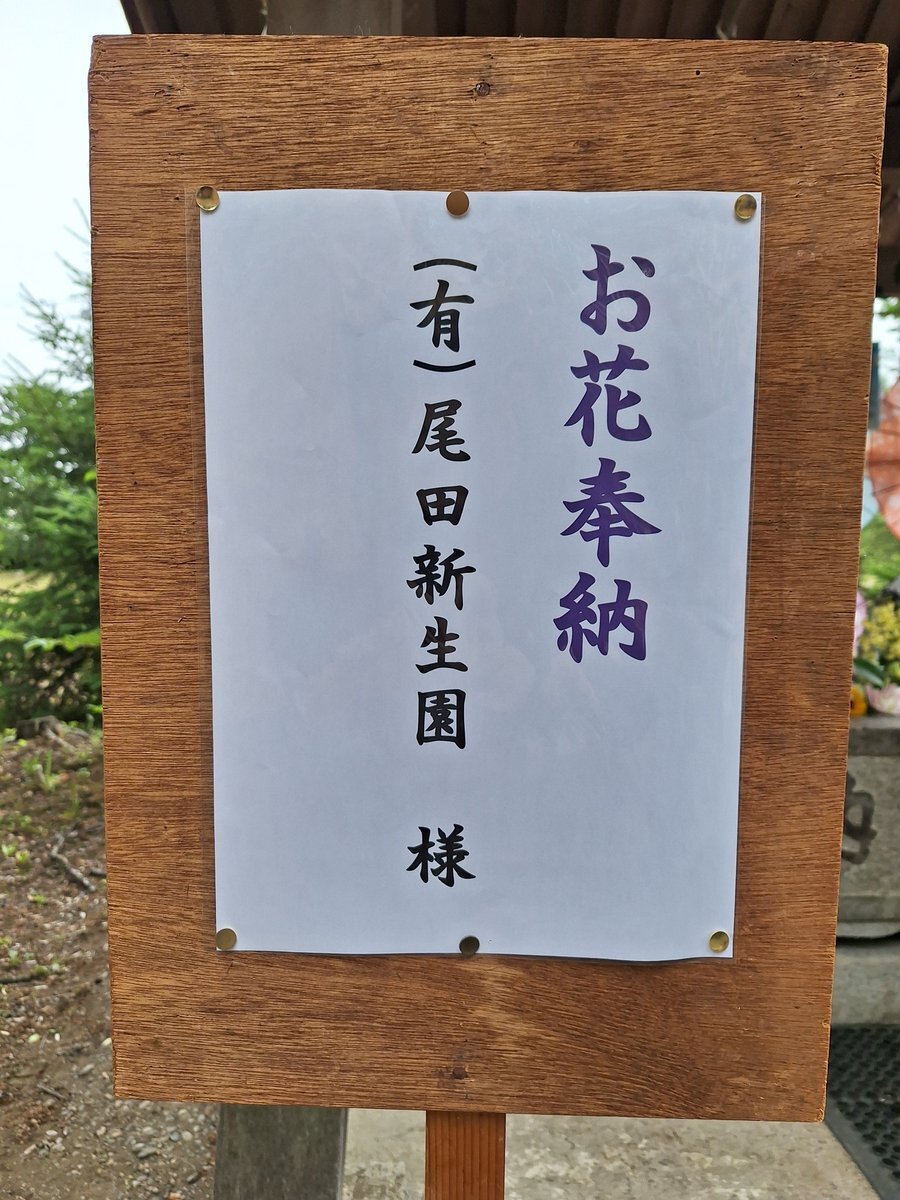 お花奉納
(有)尾田新生園 様